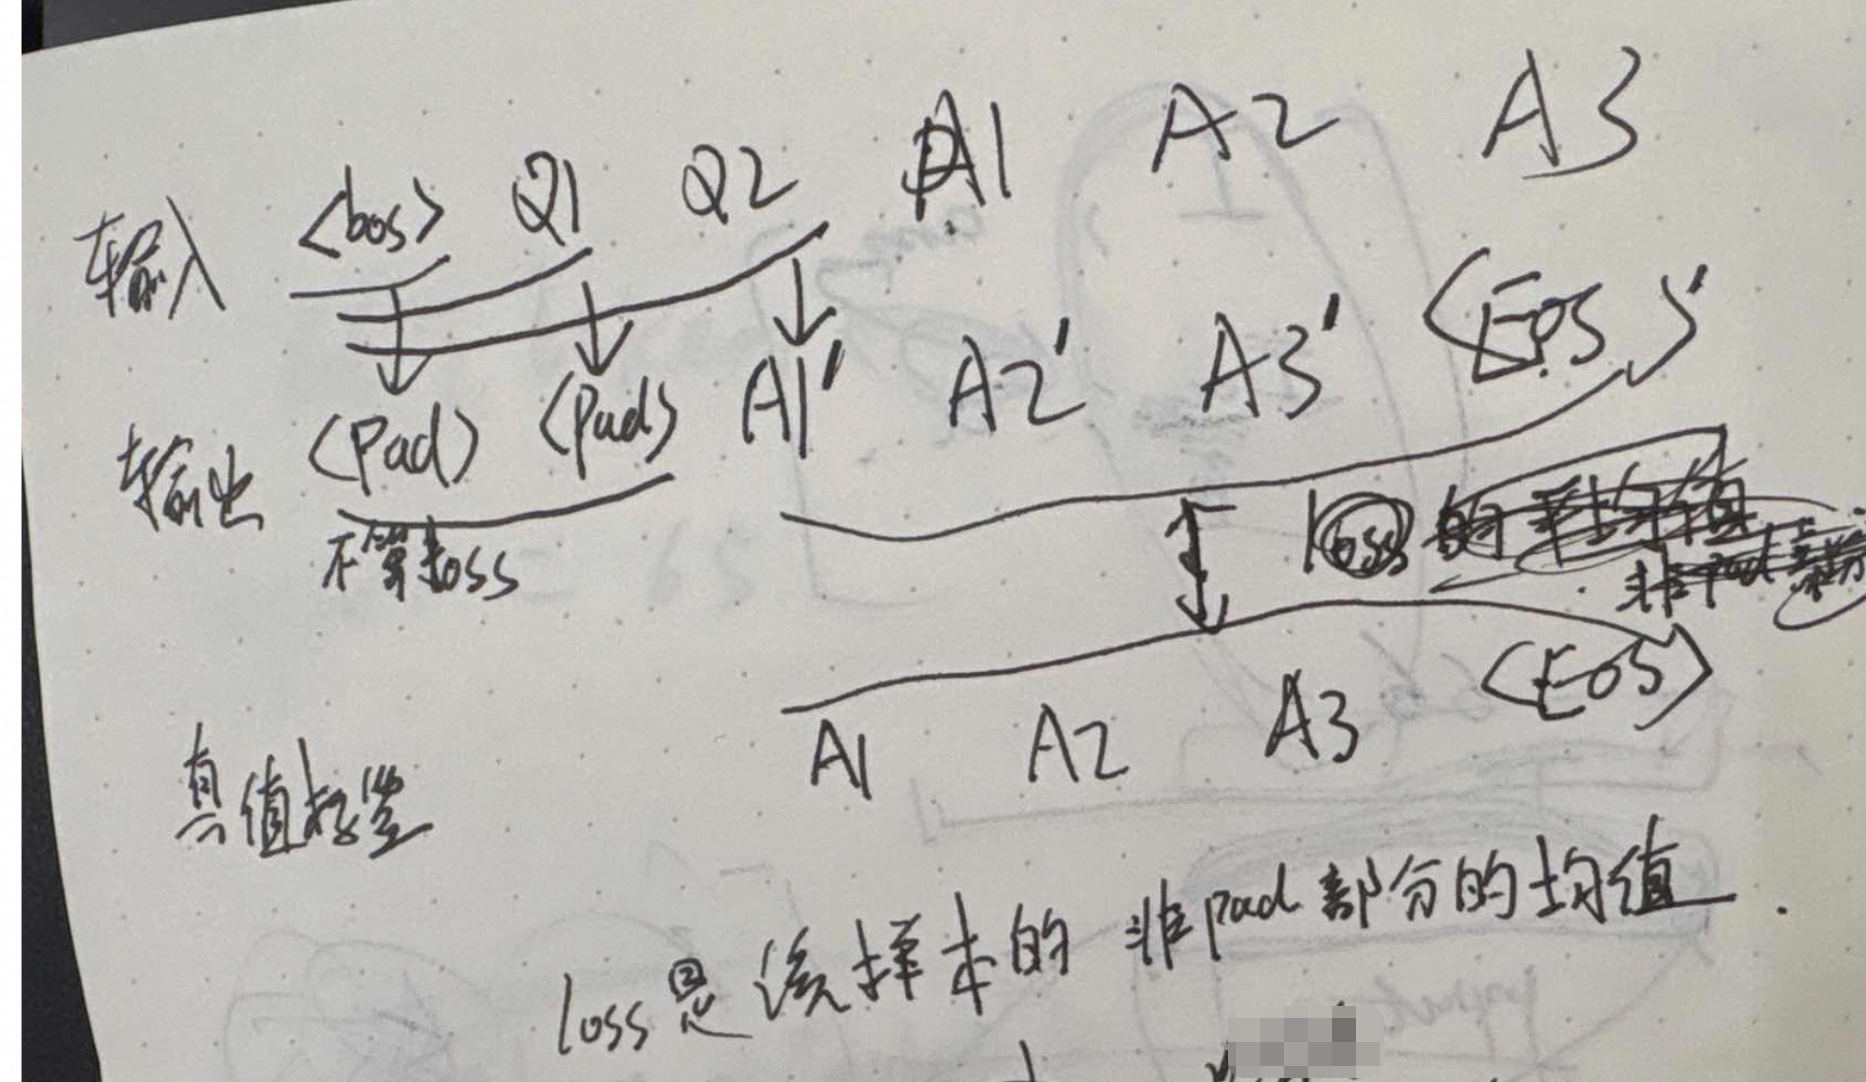 输入 <bos> Q1 Q2 A1 A2 A3
输出 <Pad> <Pad> A1' A2' A3' <EOS>'
不算loss
loss 的平均值
非pad部分
真值标签 A1 A2 A3 <EOS>
loss是该样本的非pad部分的均值.